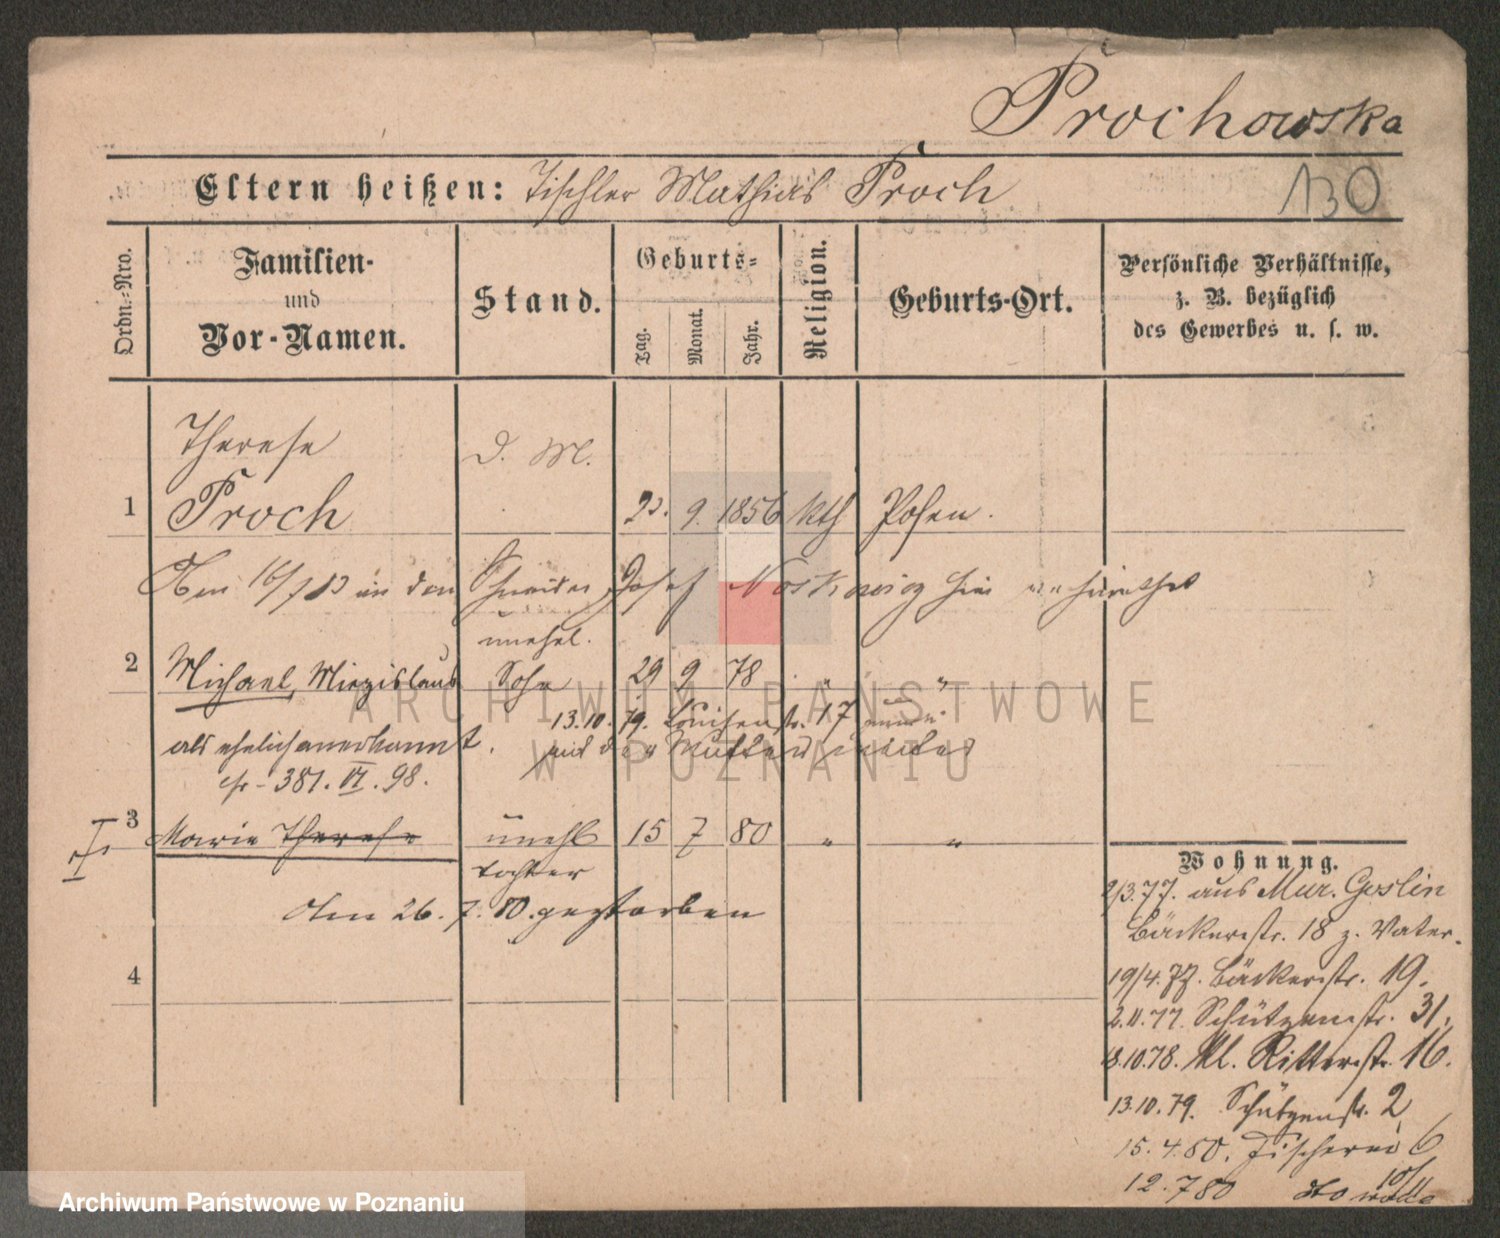 Prochowska
Eltern heißen: Tischler Mathias Proch
130
Ordn.-Nro.
Familien-
und
Vor-Namen.
Stand.
Geburts-
Tag.
Monat.
Jahr.
Religion.
Geburts-Ort.
Persönliche Verhältnisse,
z. B. bezüglich
des Gewerbes u. s. w.
Therese D. M.
1 Proch 23. 9. 1856 kth Posen.
Am 16/7 83 an den Schneider Josef hier verheirathet
unehl.
2 Michael, Miezislaus Sohn 29 9 78 " "
13.10.79. Louisenstr. 17
als ehelich anerkannt. mit der Mutter
cfr - 381. VI. 98.
3 Marie Therese unehl 15 7 80 " "
tochter
Am 26. 7. 80. gestorben
4
Wohnung.
2/3.77. aus Mur. Goslin
Bäckerstr. 18 z. Vater.
19/4.77. Bäckerstr. 19.
2.11.77. Schützenstr. 31.
18.10.78. kl. Ritterstr. 16.
13.10.79. Schützenstr. 2
15.4.80. Fischerei 6
12.7 80
ARCHIWUM PAŃSTWOWE
W POZNANIU
Archiwum Państwowe w Poznaniu